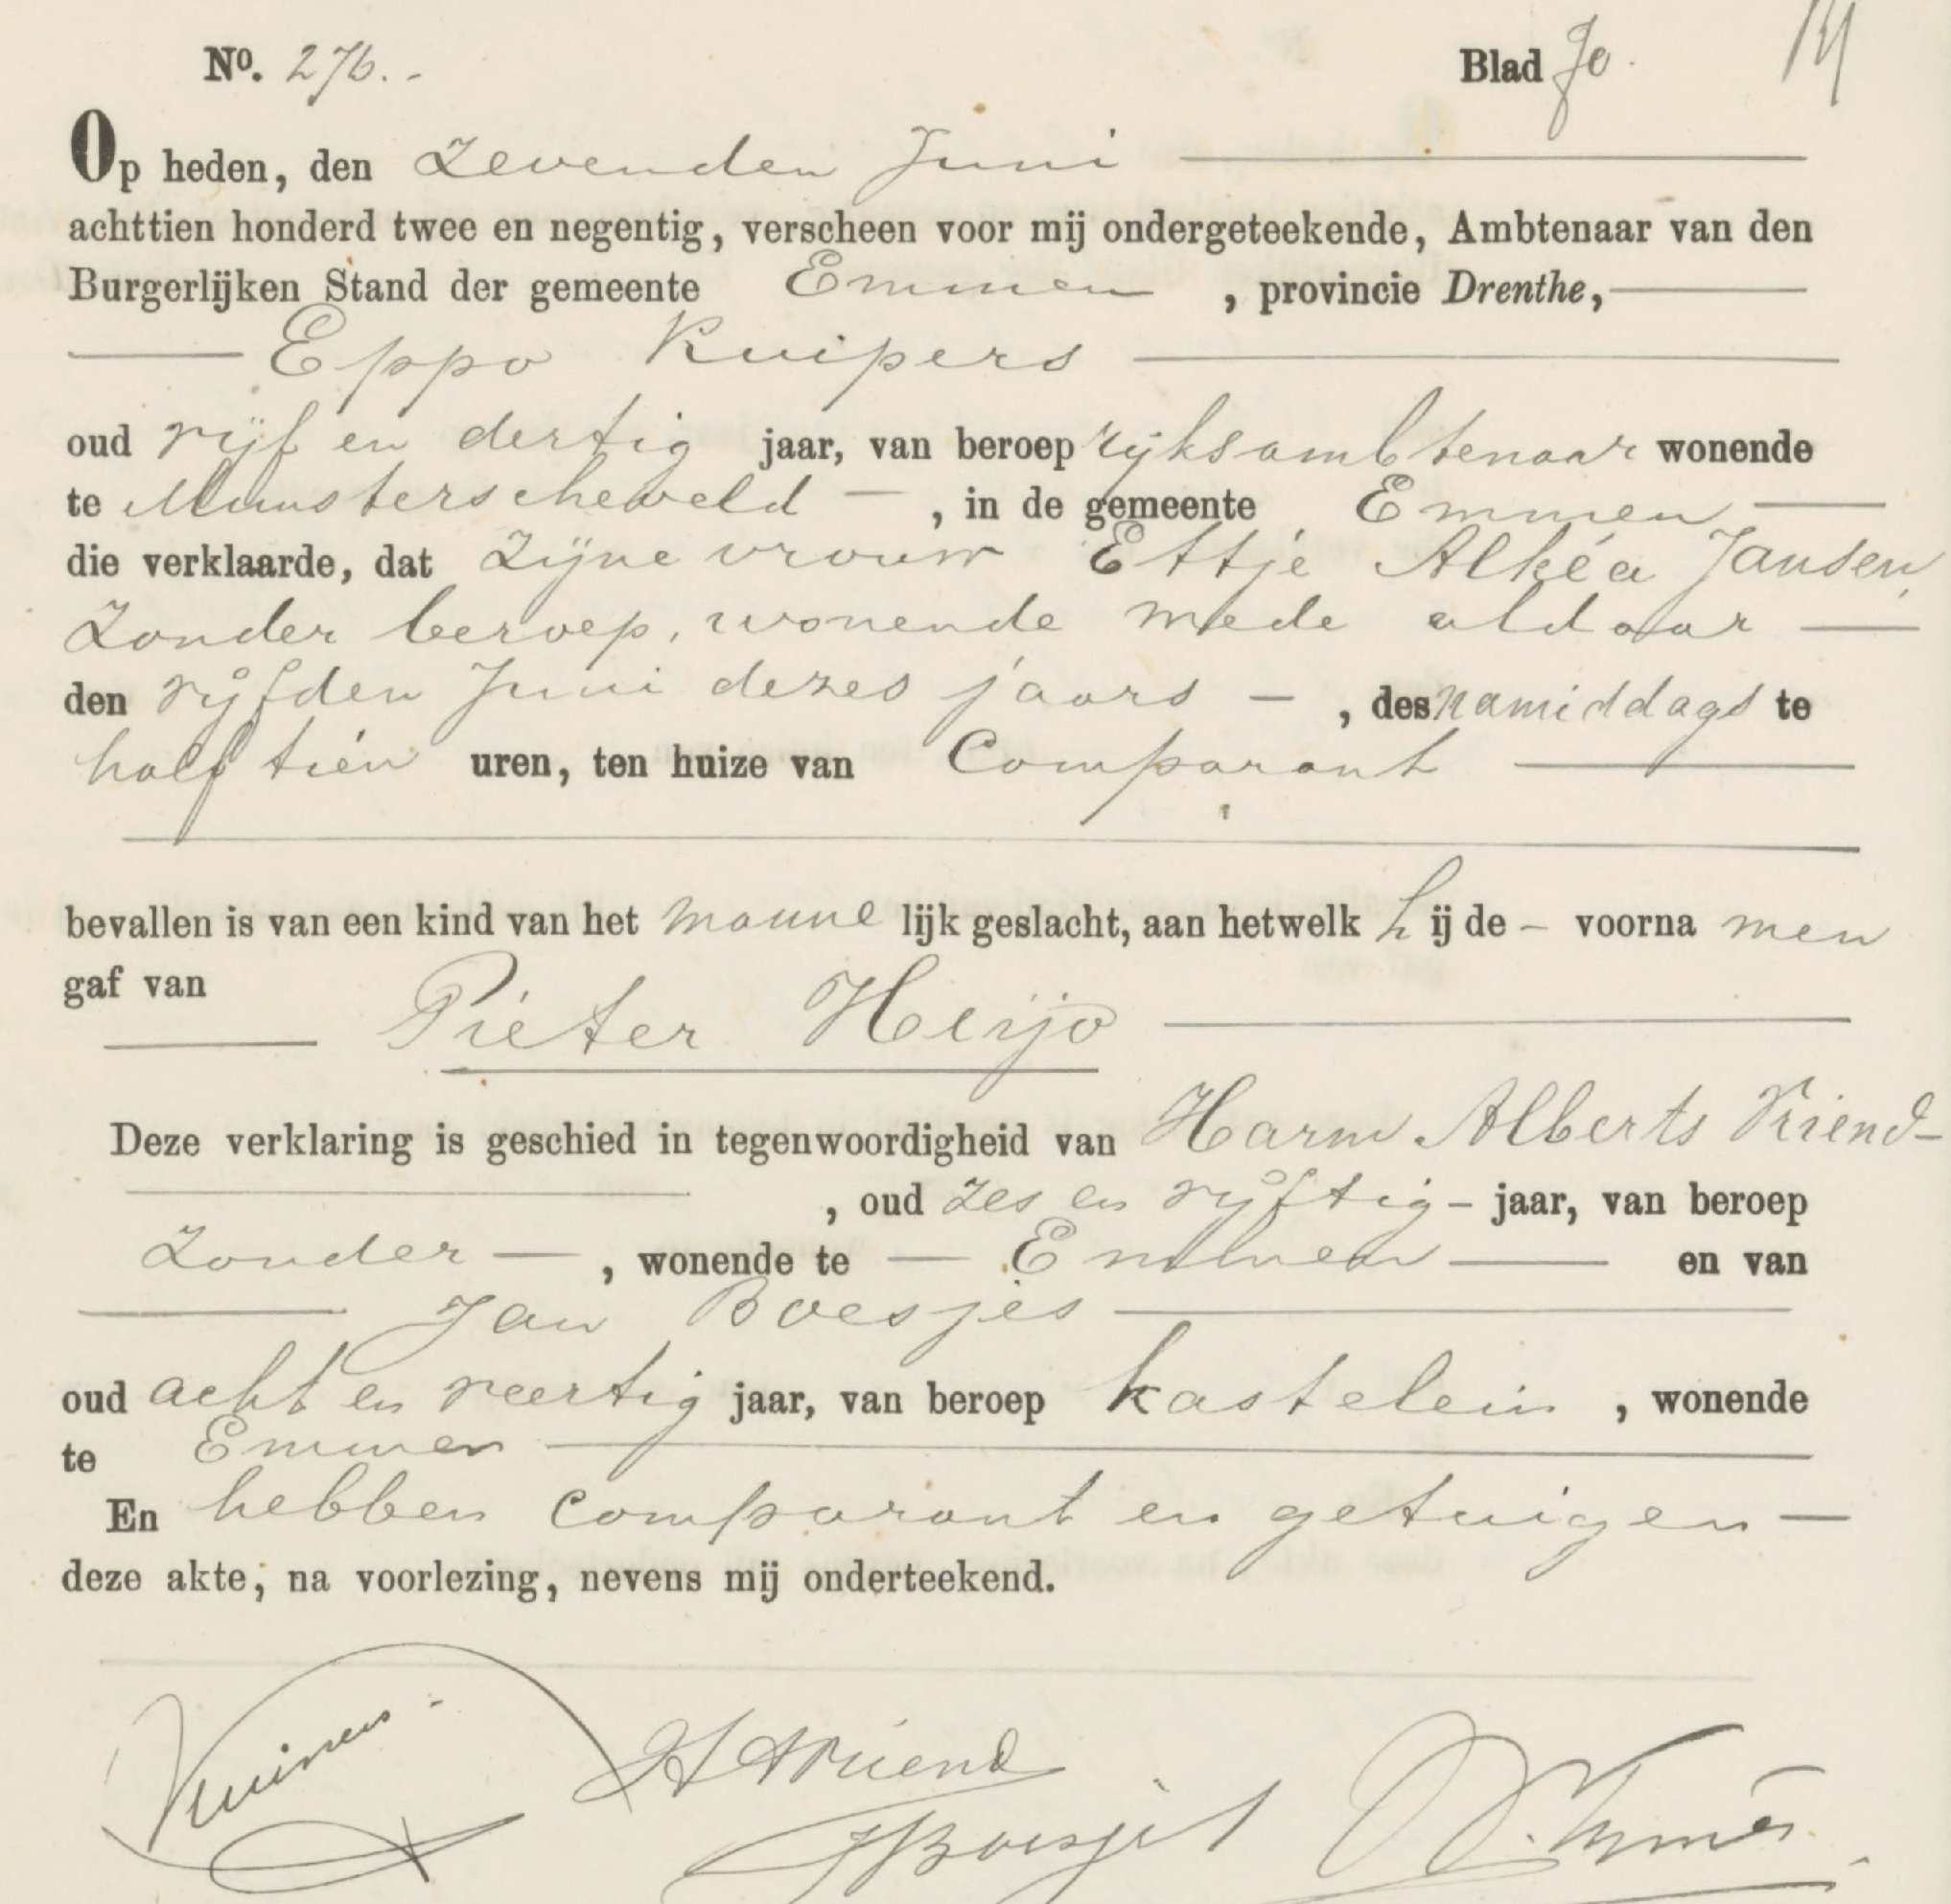 No. 276.
Blad 70.
Op heden, den zevenden Juni
achttien honderd twee en negentig, verscheen voor mij ondergeteekende, Ambtenaar van den
Burgerlijken Stand der gemeente Emmen, provincie Drenthe,
Eppo Kuipers
oud vijf en dertig jaar, van beroep rijksambtenaar wonende
te Munsterscheveld, in de gemeente Emmen
die verklaarde, dat zijne vrouw Ettje Alkéa Jansen,
zonder beroep, wonende mede aldaar
den vijfden Juni dezes jaars, des namiddags te
half tien uren, ten huize van Comparant
bevallen is van een kind van het mannelijk geslacht, aan hetwelk hij de voornamen
gaf van
Pieter Heijo
Deze verklaring is geschied in tegenwoordigheid van Harm Alberts Vriend
, oud zes en vijftig jaar, van beroep
zonder, wonende te Emmen en van
Jan Boesjes
oud acht en veertig jaar, van beroep kastelein, wonende
te Emmen
En hebben comparant en getuigen
deze akte, na voorlezing, nevens mij onderteekend.
Kuipers.
HAVriend
JBoesjes